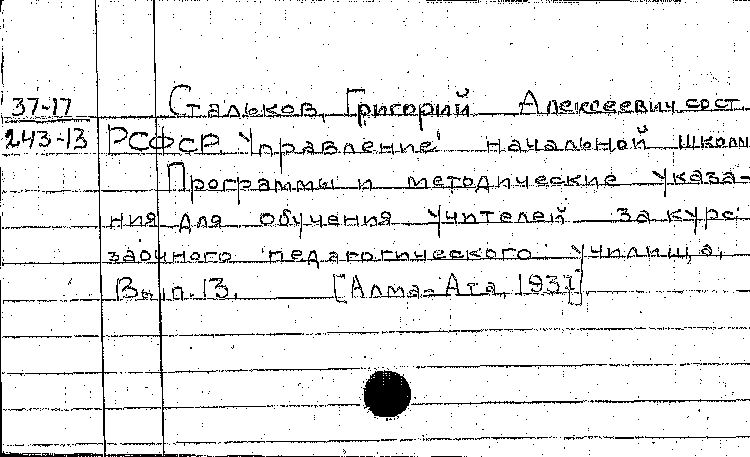 37-17 Стальков, Григорий Алексеевич сост.
243-13 РСФСР. Управление начальной школы
Программы и методические указа-
ния для обучения учителей за курс
заочного педагогического училища.
Вып. 13. [Алма-Ата, 1937]